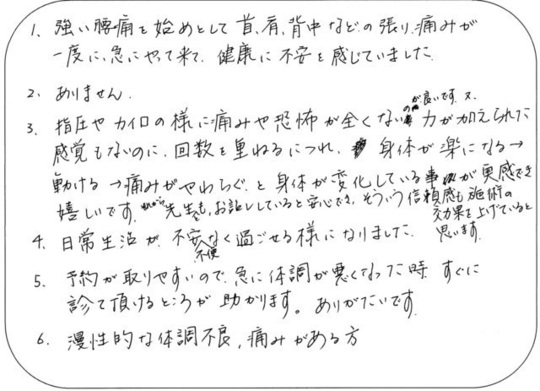 1. 強い腰痛を始めとして首、肩、背中などの張り、痛みが
一度に、急にやって来て、健康に不安を感じていました
2. ありません.
3. 指圧やカイロの様に痛みや恐怖が全くないのが良いです。又、力が加えられた
感覚もないのに、回数を重ねるにつれ、身体が楽になる→
動ける→痛みがやわらぐ、と身体が変化している事が実感でき
嬉しいです。先生も、お話ししていると安心でき、そういう信頼感も施術の
効果を上げていると
思います。
4. 日常生活が、不便なく過ごせる様になりました.
5. 予約が取りやすいので、急に体調が悪くなった時、すぐに
診て頂けるところが助かります。ありがたいです.
6. 慢性的な体調不良、痛みがある方